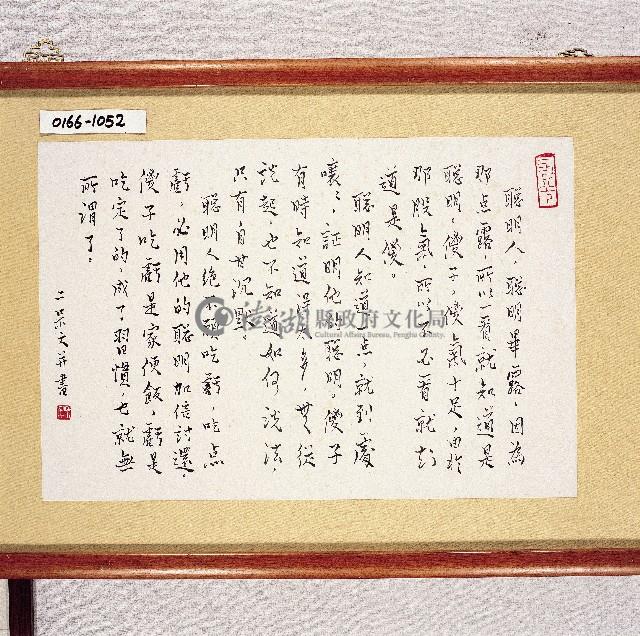 0166-1052
聰明人，聰明畢露，因為
那点露，所以一看就知道是
聰明，傻子，傻氣十足，由於
那股氣，所以不必看就知
道是傻。
聰明人知道一点，就到處
嚷嚷，証明他的聰明，傻子
有時知道得太多，無從
說起，也不知道如何說法，
只有自甘沉默。
聰明人絕不願吃虧，吃点
虧，必用他的聰明加倍討還，
傻子吃虧是家便飯，虧是
吃定了的，成了習慣，也就無
所謂了。
二呆大并書
澎湖縣政府文化局
Cultural Affairs Bureau, Penghu County.